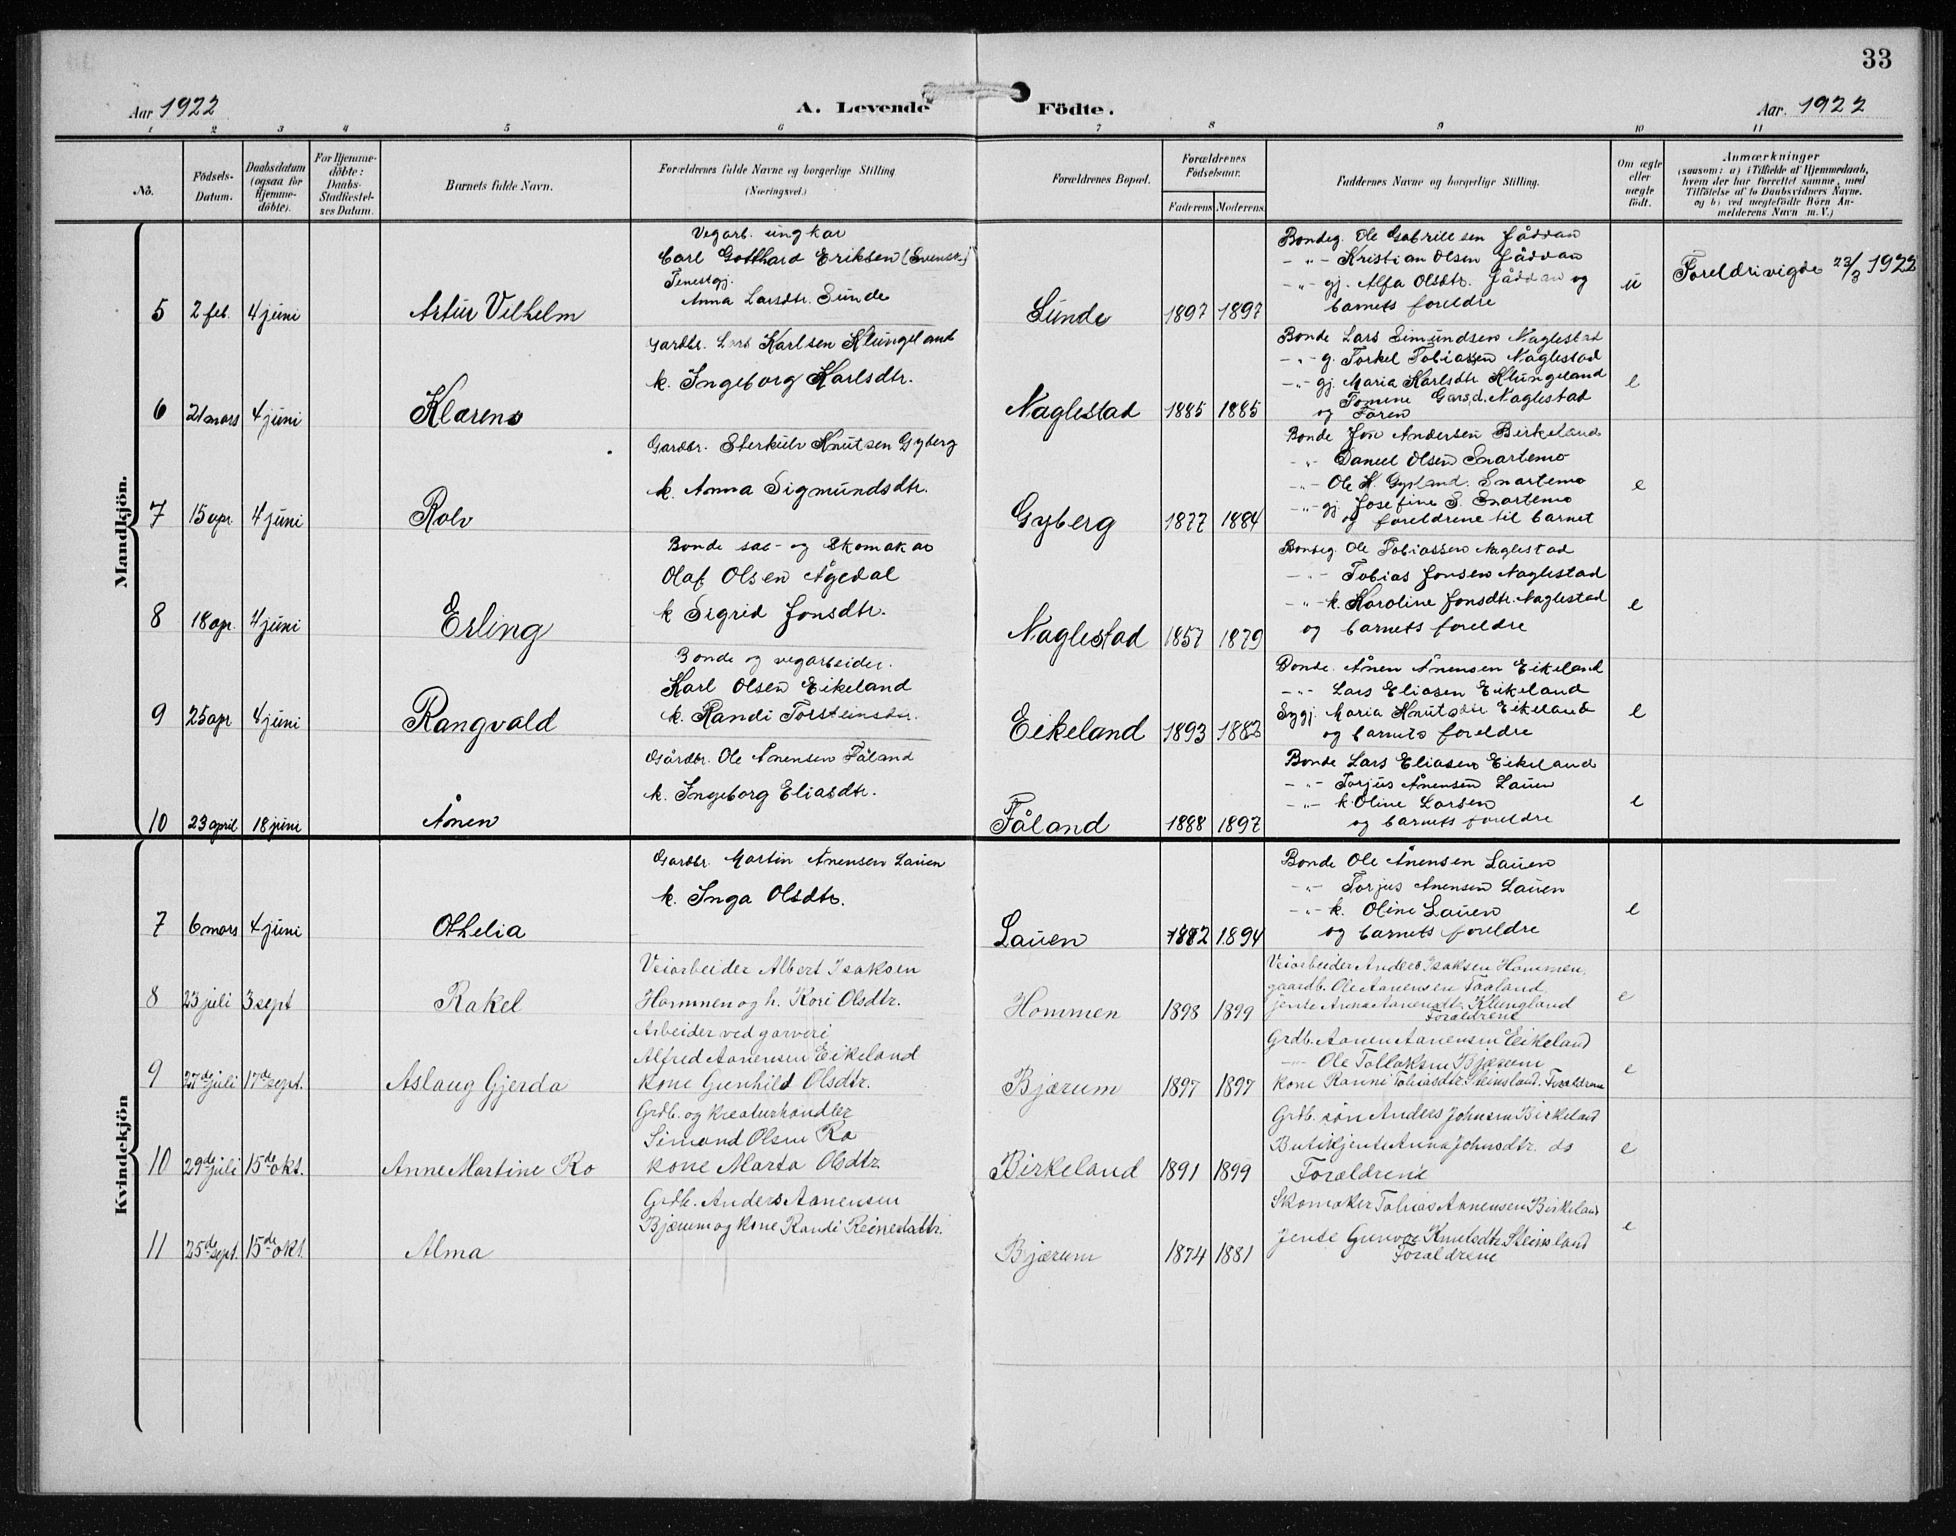 33
Aar 1922
A. Levende
Födte.
Aar. 1922
1 2 3 4 5 6 7 8 9 10 11
No.
Födsels-
Datum.
Daabsdatum
(ogsaa for
Hjemme-
döbte).
For Hjemme-
döbte:
Daabs-
Stadfæstel-
ses Datum.
Barnets fulde Navn.
Forældrenes fulde Navne og borgerlige Stilling
(Næringsvei.)
Forældrenes Bopæl.
Forældrenes
Födselsaar.
Faderens.
Moderens.
Faddernes Navne og borgerlige Stilling.
Om ægte
eller
uægte
födt.
Anmærkninger
(saasom: a) i Tilfælde af Hjemmedaab,
hvem der har forrettet samme, med
Tilföielse af to Daabsvidners Navne,
og b) ved uægtefödte Börn An-
melderens Navn m. V.)
Mandkjön.
Vegarb. ungkar
Carl Gotthard Eriksen (Svensk)
Tenestgj.
Anna Larsdtr. Sunde
5 2 feb. 4 juni Artur Vilhelm
Sunde 1897 1897
Bondeg. Ole Gabrielsen Jåddan
-"- Kristian Olsen Jåddan
-"- gj. Alfa Olsdtr. Jåddan og
barnets foreldre
u
Foreldri vigde 23/3 1922
Gardbr. Lars Karlsen Klungeland
k. Ingeborg Karlsdtr.
6 21 mars 4 juni Klarens
Naglestad 1885 1885
Bonde Lars Simundsen Naglestad
-"- g. Torkel Tobiassen Naglestad
-"- gj. Maria Karlsdtr Klungeland
Tomine Garsd. Naglestad
og Faren
e
Gardbr. Sterkulv Knutsen Gyberg
k. Anna Sigmundsdtr.
7 15 apr. 4 juni Rolv
Gyberg 1877 1884
Bonde Jon Andersen Birkeland
-"- Daniel Olsen Snartemo
-"- Ole K. Gysland. Snartemo
-"- gj. Josefine S. Snartemo
og foreldrene til barnet
e
Bonde sal- og skomakar
Olaf Olsen Ågedal
k Sigrid Jonsdtr.
8 18 ap. 4 juni Erling
Naglestad 1857 1879
Bondeg. Ole Tobiassen Naglestad
-"- Tobias Jonsen Naglestad
-"- k. Karoline Jonsdtr. Naglestad
og barnets foreldre
e
Bonde og vegarbeider.
Karl Olsen Eikeland
k. Randi Torsteinsdtr.
9 25 apr 4 juni Rangvald
Eikeland 1893 1883
Bonde. Ånen Ånensen Eikeland
-"- Lars Eliasen Eikeland
Sygj. Maria Knutsdtr Eikeland
og barnets foreldre
e
Gårdbr. Ole Ånensen Fåland
k. Ingeborg Eliasdtr.
10 23 april 18 juni Ånen
Fåland 1888 1897
Bonde Lars Eliasen Eikeland
-"- Torjus Ånensen Lauen
-"- k Oline Larsen
og barnets foreldre
e
Kvindekjön
Gardbr. Martin Ånensen Lauen
k. Inga Olsdtr.
7 6 mars 4 juni Othelia
Lauen 1882 1894
Bonde Ole Ånensen Lauen
-"- Torjus Ånensen Lauen
-"- k. Oline Lauen
og barnets foreldre
e
Veiarbeider Albert Isaksen
Hommen og h. Kori Olsdtr.
8 23 juli 3 sept Rakel
Hommen 1898 1899
Veiarbeider Anders Isaksen Hommen,
gaardb. Ole Aanensen Faaland,
jente Anna Aanensdtr. Klungland
Forældrene
e
Arbeider ved garveri
Alfred Aanensen Eikeland
kone Gunhild Olsdtr.
9 27de juli 17de sept. Aslaug Gjerda
Bjærum 1897 1897
Grdb. Aanen Aanensen Eikeland
-"- Ole Tollaksen Bjærum
kone Ranni Tobiasdtr. Steinsland. Forældrene
e
Grdb. og Kreaturhandler
Simond Olsen Ro
kone Marta Olsdtr.
10 29de juli 15de okt. Anne Martine Ro
Birkeland 1891 1899
Grdb. søn Anders Johnsen Birkeland
Butikjente Anna Johnsdtr. ds
Forældrene
e
Grdb. Anders Aanensen
Bjærum og kone Randi Reinertsdtr.
11 25de sept. 15de okt. Alma
Bjærum 1874 1881
Skomaker Tobias Aanensen Birkeland
Jente Gunvor Knutsdtr Steinsland
Forældrene
e